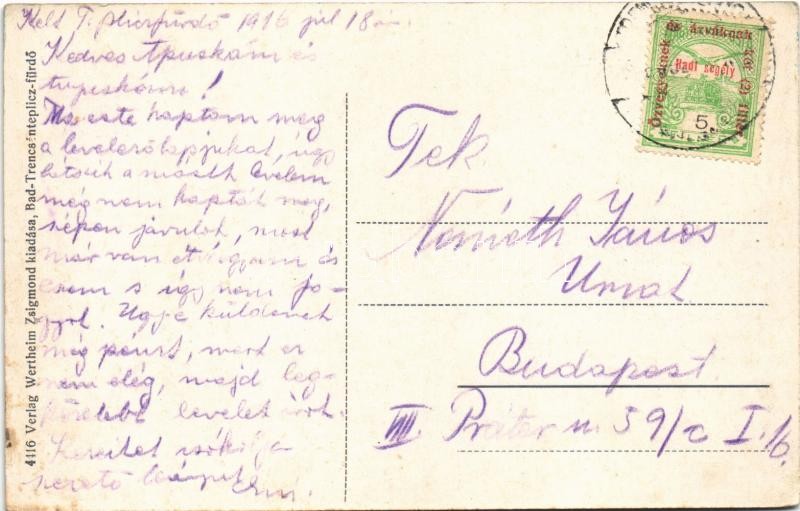 Kelt T. pliczfürdő 1916 júl 18án.
Kedves Apuskám és
!
Ma este kaptam meg
a levelezőlapjukat, úgy
látszik a levelem
még nem kapták meg,
szépen javulok, most
már van étvágyam és
eszem s így nem fo-
gyok. Ugye küldenek
még pénzt, mert ez
nem elég, majd leg-
közelebb levelet írok.
Kezeiket csókolja
szerető leányuk
Tek.
Németh János
Urnak
Budapest
VIII. Práter u. 59/c I. 16.
4116 Verlag Wertheim Zsigmond kiadása, Bad-Trencsénteplicz-fürdő
Özvegyeknek és árváknak két (2) fillér
Hadi segély
5